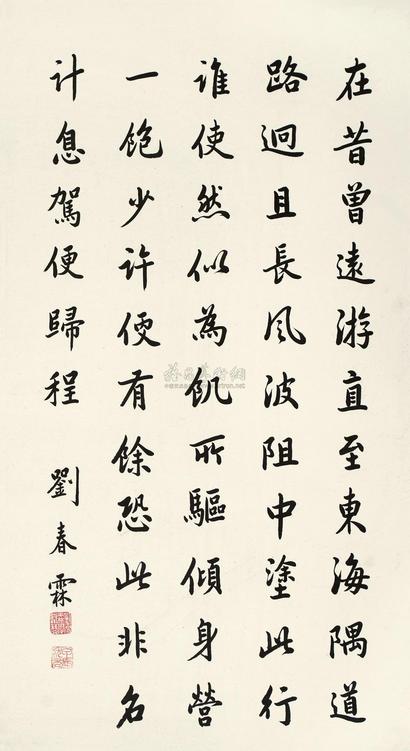 在昔曾遠游直至東海隅道
路迥且長風波阻中塗此行
誰使然似為飢所驅傾身營
一飽少許便有餘恐此非名
計息駕便歸程
劉春霖